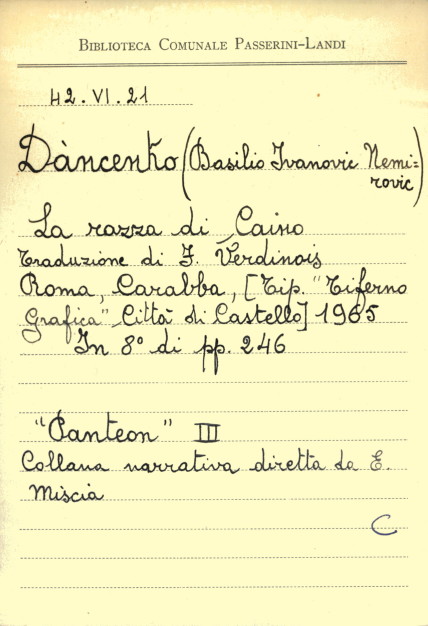 BIBLIOTECA COMUNALE PASSERINI-LANDI
42.VI.21
Dàncenko (Basilio Ivanovic Nemi=
rovic)
La razza di Caino
Traduzione di F. Verdinois
Roma, Carabba, [Tip. "Tiferno
Grafica" Città di Castello] 1965
In 8° di pp. 246
"Panteon" III
Collana narrativa diretta da E.
Miscia
C